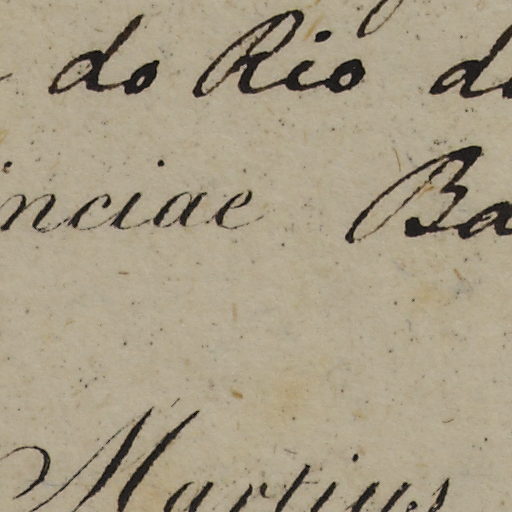 do Rio d
inciae Ba
Martius